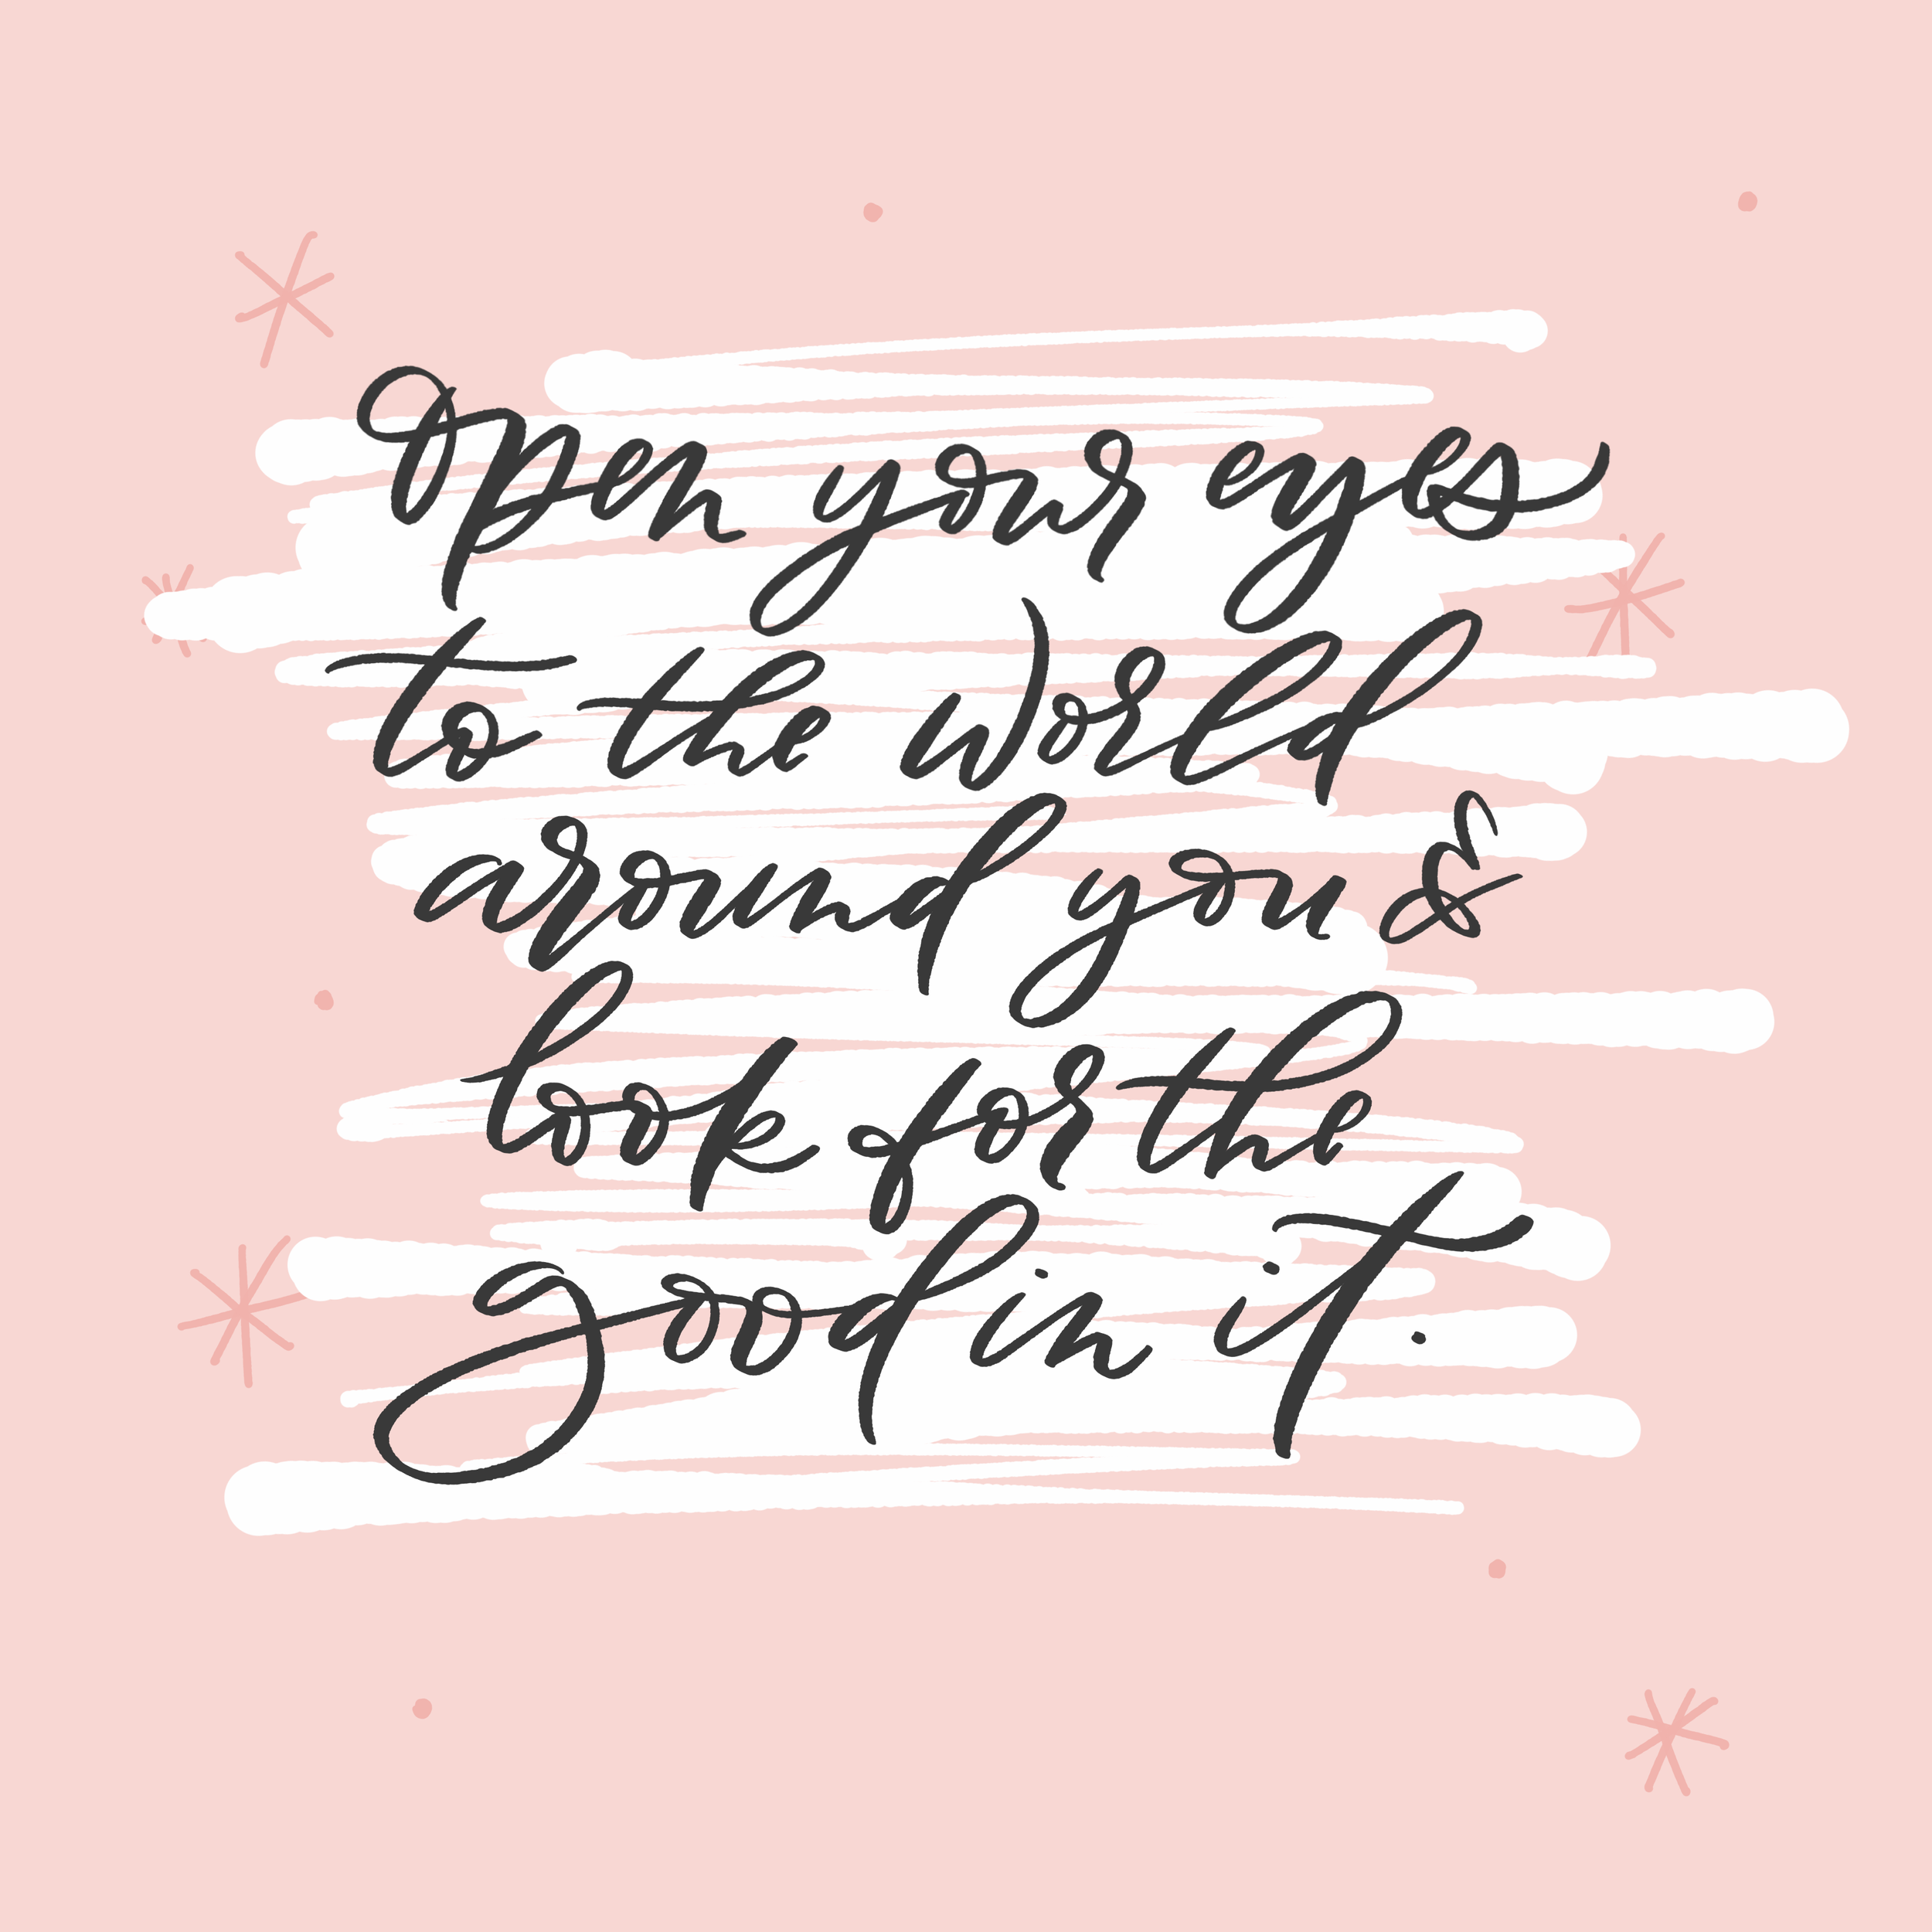 Open your eyes
to the world
around you &
look for the
good in it.